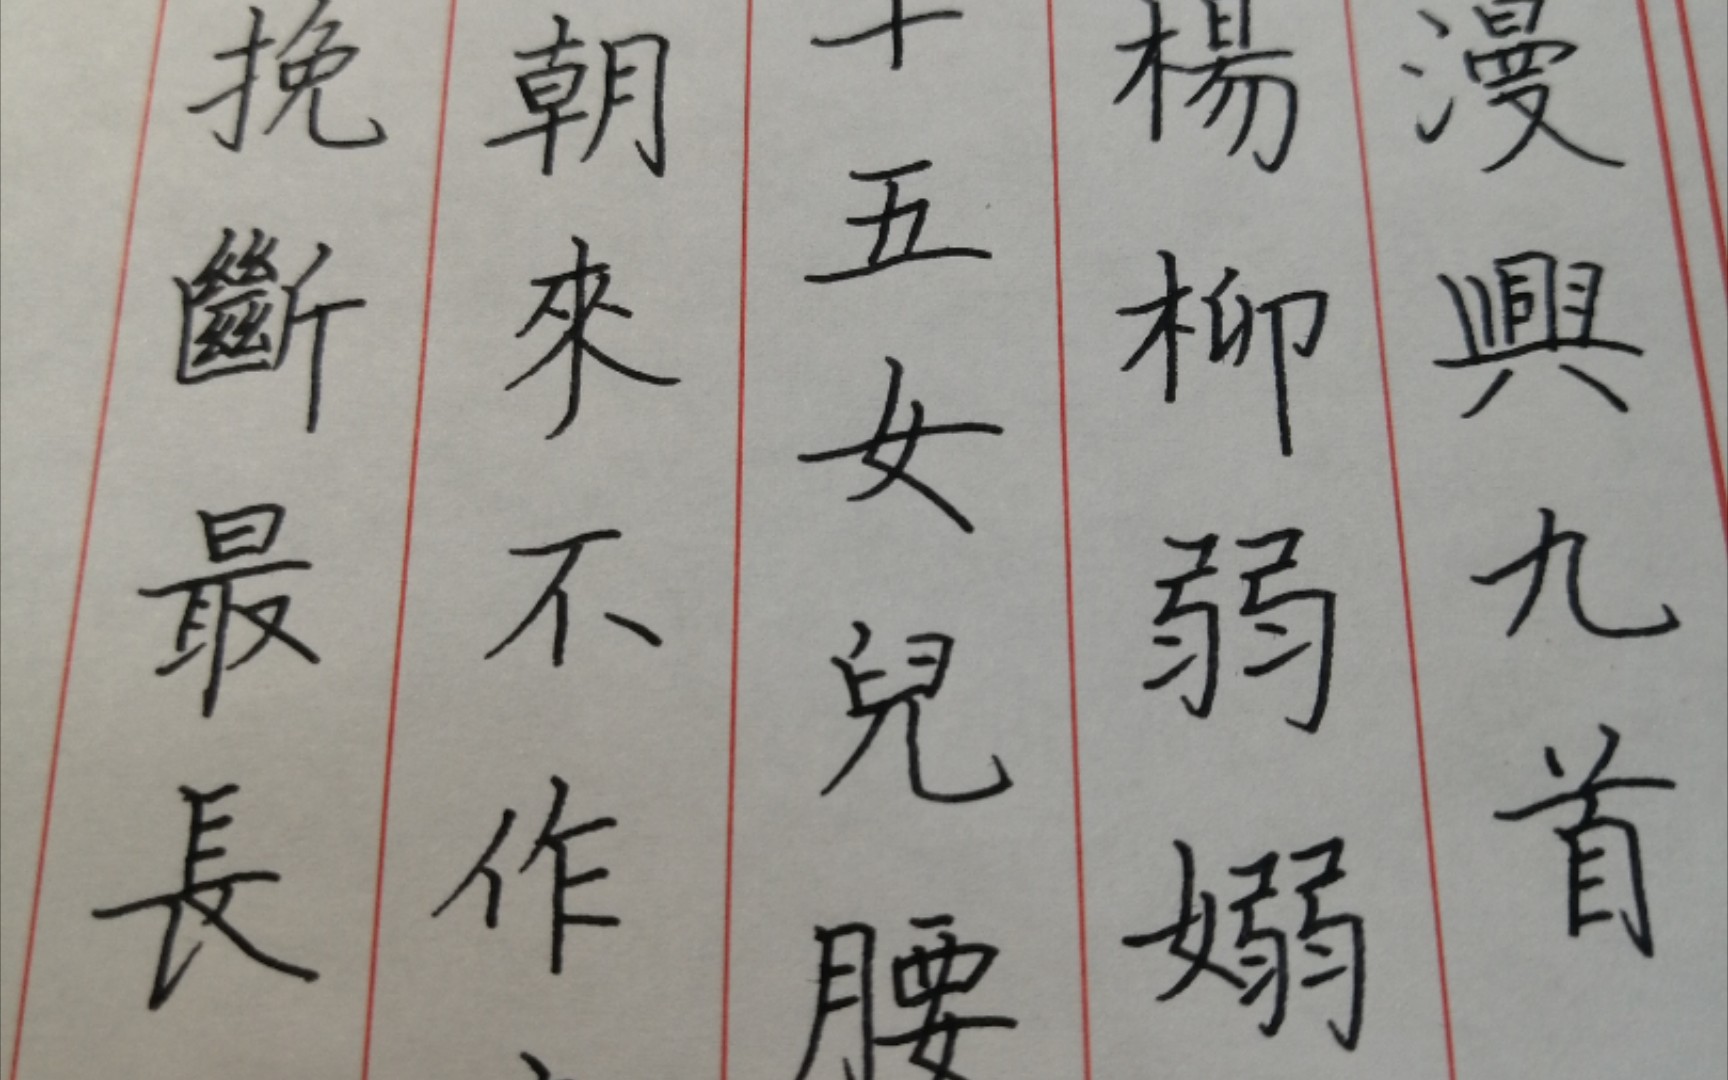 漫興九首
楊柳弱嫋
十五女兒腰
朝來不作
挽斷最長